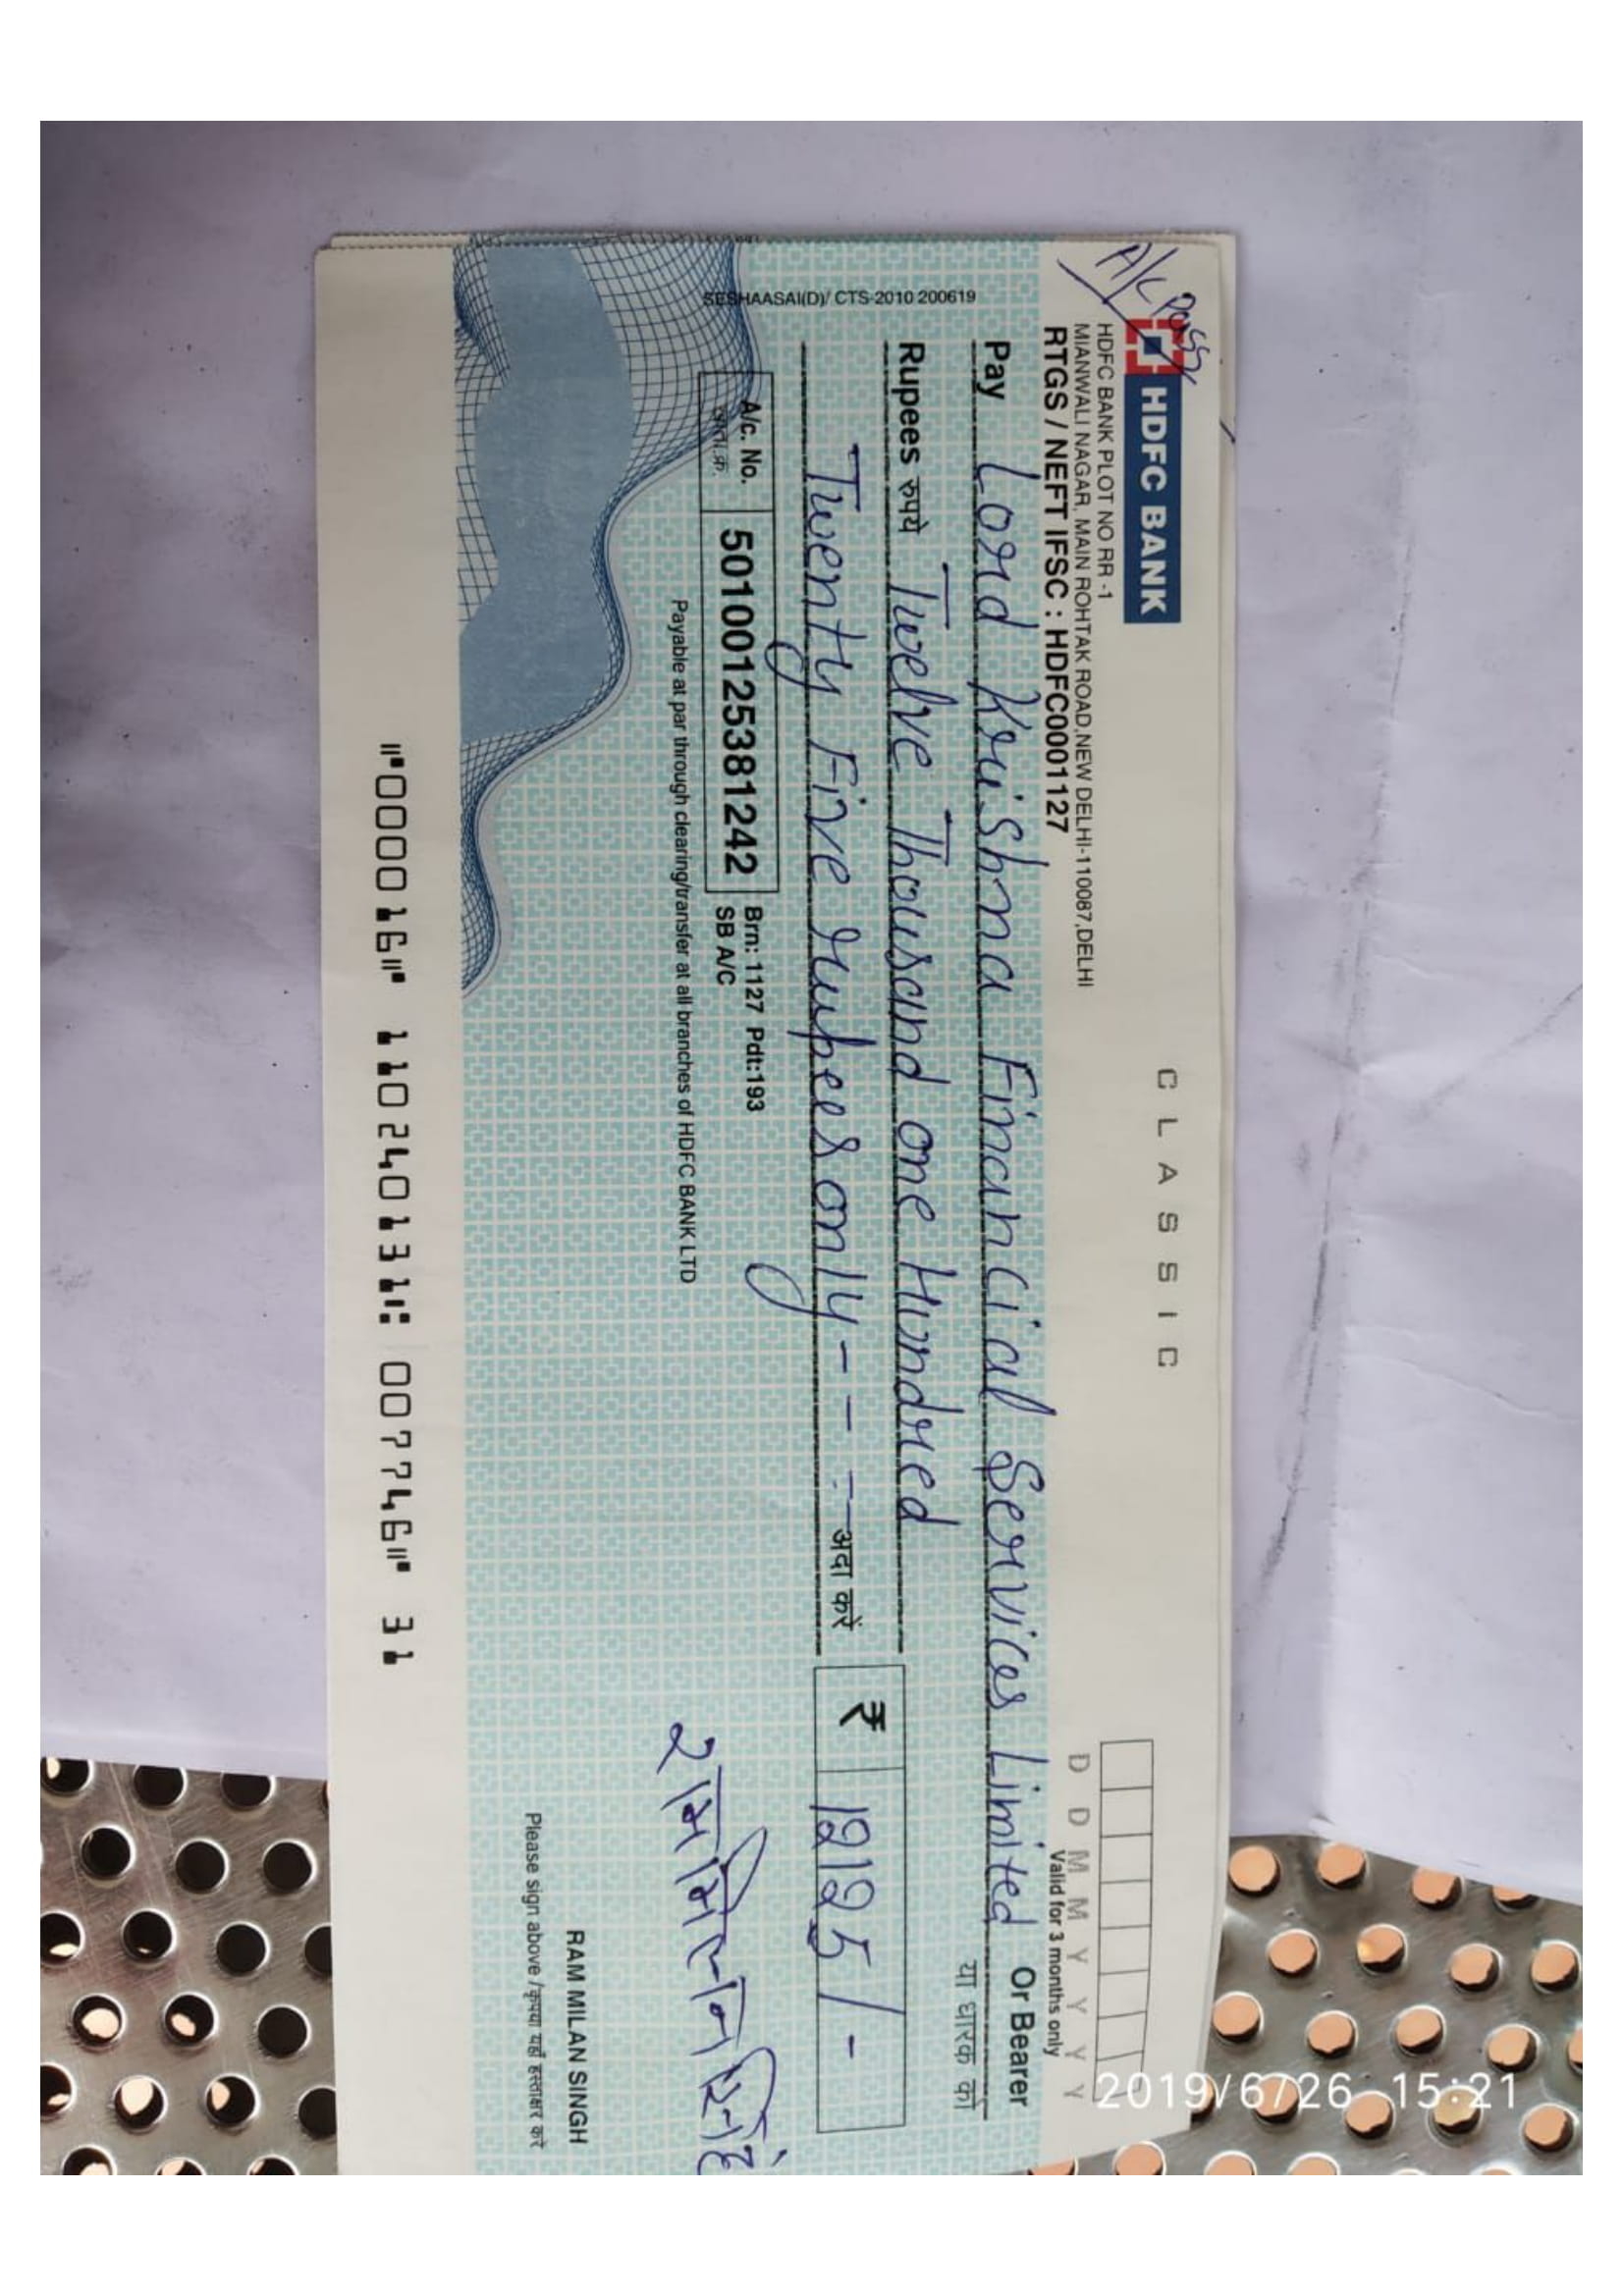 A/c Payee
HDFC BANK
CLASSIC
HDFC BANK PLOT NO RR -1
MIANWALI NAGAR, MAIN ROHTAK ROAD,NEW DELHI-110087,DELHI
RTGS / NEFT IFSC : HDFC0001127
D D M M Y Y Y Y
Valid for 3 months only
Pay Lord Krishna Financial Services Limited Or Bearer
या धारक को
Rupees रुपये Twelve Thousand one Hundred
Twenty Five rupees only - - - - अदा करें
₹ 12125/-
A/c. No. 50100125381242 Brn: 1127 Pdt:193
खाता क्र. SB A/C
Payable at par through clearing/transfer at all branches of HDFC BANK LTD
राम मिलन सिंह
RAM MILAN SINGH
Please sign above /कृपया यहाँ हस्ताक्षर करें
SESHAASAI(D)/ CTS-2010 200619
⑈000016⑈ 110240131⑆ 007746⑈ 31
2019/6/26 15:21